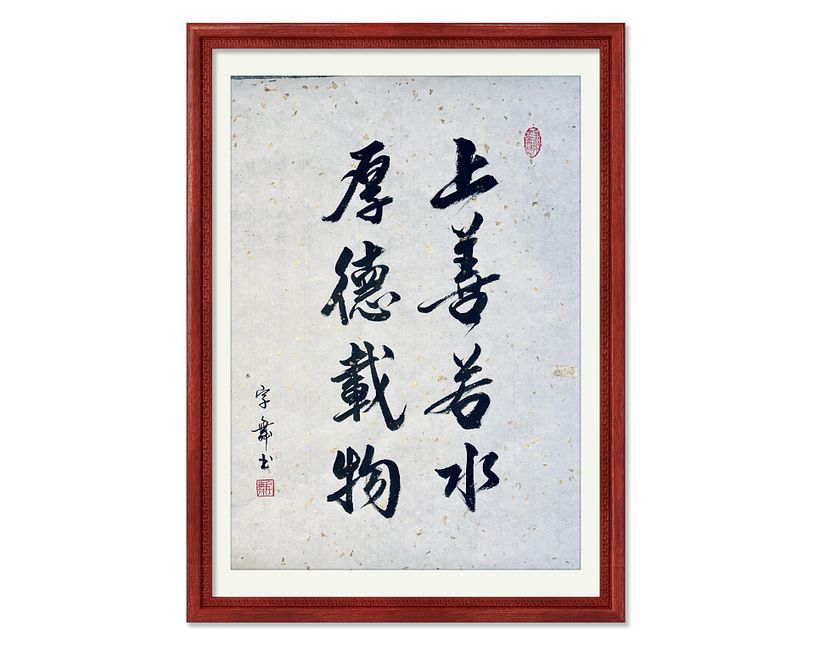 上善若水
厚德載物
字舞書